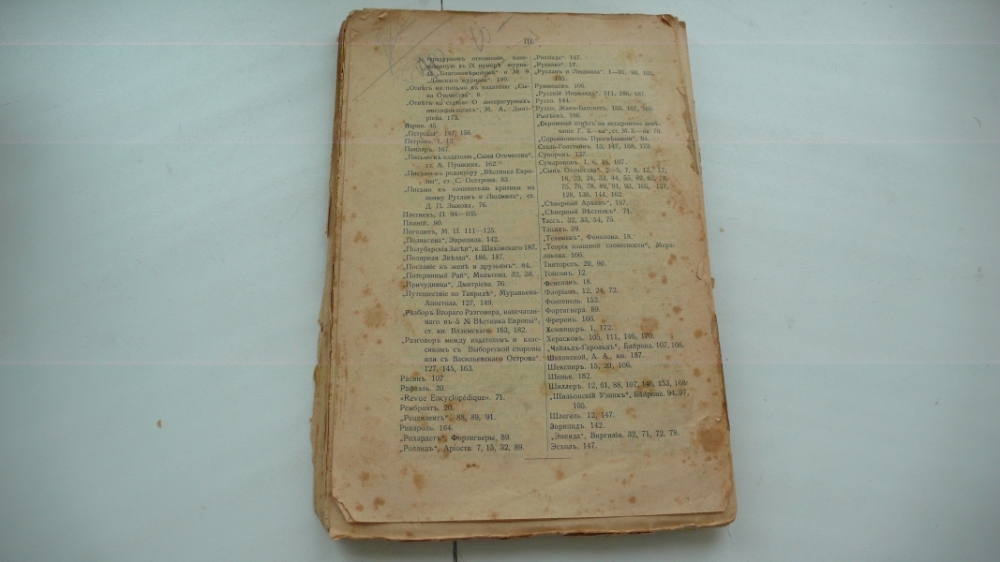 III.
литературномъ отношеніи, напе-
чатанную въ IX нумерѣ журна-
ла „Благонамѣренный“ и № 9
„Дамскаго журнала“. 189.
„Отвѣтъ на письмо къ издателю „Сы-
на Отечества“. 6.
„Отвѣтъ на статью: О литературныхъ
мистификаціяхъ“, М. А. Дмит-
ріева. 173.
Парни. 45.
„Петріада“. 147, 156.
Петровъ. 1, 12.
Пиндаръ. 167.
„Письмо къ издателю „Сына Отечества“,
ст. А. Пушкина. 162.
„Письмо къ редактору „Вѣстника Евро-
пы“, ст. С. Осетрова. 83.
„Письмо къ сочинителю критики на
поэму Русланъ и Людмила“, ст.
Д. П. Зыкова. 76.
Плетневъ, П. 94—108.
Плиній. 90.
Погодинъ, М. П. 111—125.
„Поликсена“, Эврипида. 142.
„Полубарскія Затѣи“, к. Шаховскаго 187.
„Полярная Звѣзда“. 186, 187.
„Посланіе къ женѣ и друзьямъ“. 84.
„Потерянный Рай“, Мильтона. 32, 38.
„Причудница“, Дмитріева. 76.
„Путешествіе по Тавридѣ“, Муравьева-
Апостола. 127, 149.
„Разборъ Втораго Разговора, напечатан-
наго въ 5 № Вѣстника Европы“,
ст. кн. Вяземскаго. 163, 182.
„Разговоръ между издателемъ и клас-
сикомъ съ Выборгской стороны
или съ Васильевскаго Острова“.
127, 145, 163.
Расинъ. 107.
Рафаэль. 20.
«Revue Encyclopédique». 71.
Рембрантъ. 20.
„Рецензентъ“. 88, 89, 91.
Ривароль. 164.
„Рихардетъ“, Фортигверры, 89.
„Роландъ“, Аріоста. 7, 15, 32, 89.
„Россіада“. 147.
„Русалка“. 17.
„Русланъ и Людмила“. 1—91, 98, 105,
Румянцевъ. 106.
„Русскій Инвалидъ“. 111, 186, 187.
Руссо. 144.
Руссо, Жанъ-Батистъ.
Рылѣевъ. 186.
„Скромный отвѣтъ на нескромное замѣ-
чаніе Г. К—ва“, ст. М. К—ва 78.
„Соревнователь Просвѣщенія“. 94.
Сталь-Гольстейнъ. 15, 147, 168, 173.
Суворовъ. 137.
Сумароковъ. 1, 6, 35, 167.
„Сынъ Отечества“. 2—5, 7, 8, 12, 17,
18, 23, 24, 33, 44, 55, 69, 63, 70,
75, 76, 78, 89, 91, 93, 105, 127,
128, 138, 144, 162.
„Сѣверный Архивъ“. 187.
„Сѣверный Вѣстникъ“. 71.
Тассъ. 32, 33, 54, 75.
Тацитъ. 39.
„Телемакъ“, Фенелона. 18.
„Теорія изящной словесности“, Мерз-
лякова. 106.
Тинторетъ. 20, 90.
Томсонъ. 12.
Фенелонъ. 18.
Флоріанъ. 12, 24, 72.
Фонтенель. 153.
Фортигверра. 89.
Фреронъ. 166.
Хемницеръ. 1, 172.
Херасковъ. 105, 111, 146, 170.
„Чайльдъ-Гарольдъ“, Байрона. 107, 108.
Шаховской, А. А., кн. 187.
Шекспиръ. 15, 20, 106.
Шенье. 182.
Шиллеръ. 12, 61, 88, 107, 146, 153, 168.
„Шильонскій Узникъ“, Байрона. 94, 97,
105.
Шлегель. 12, 147.
Эврипидъ. 142.
„Энеида“, Виргилія. 32, 71, 72, 78.
Эсхилъ. 147.